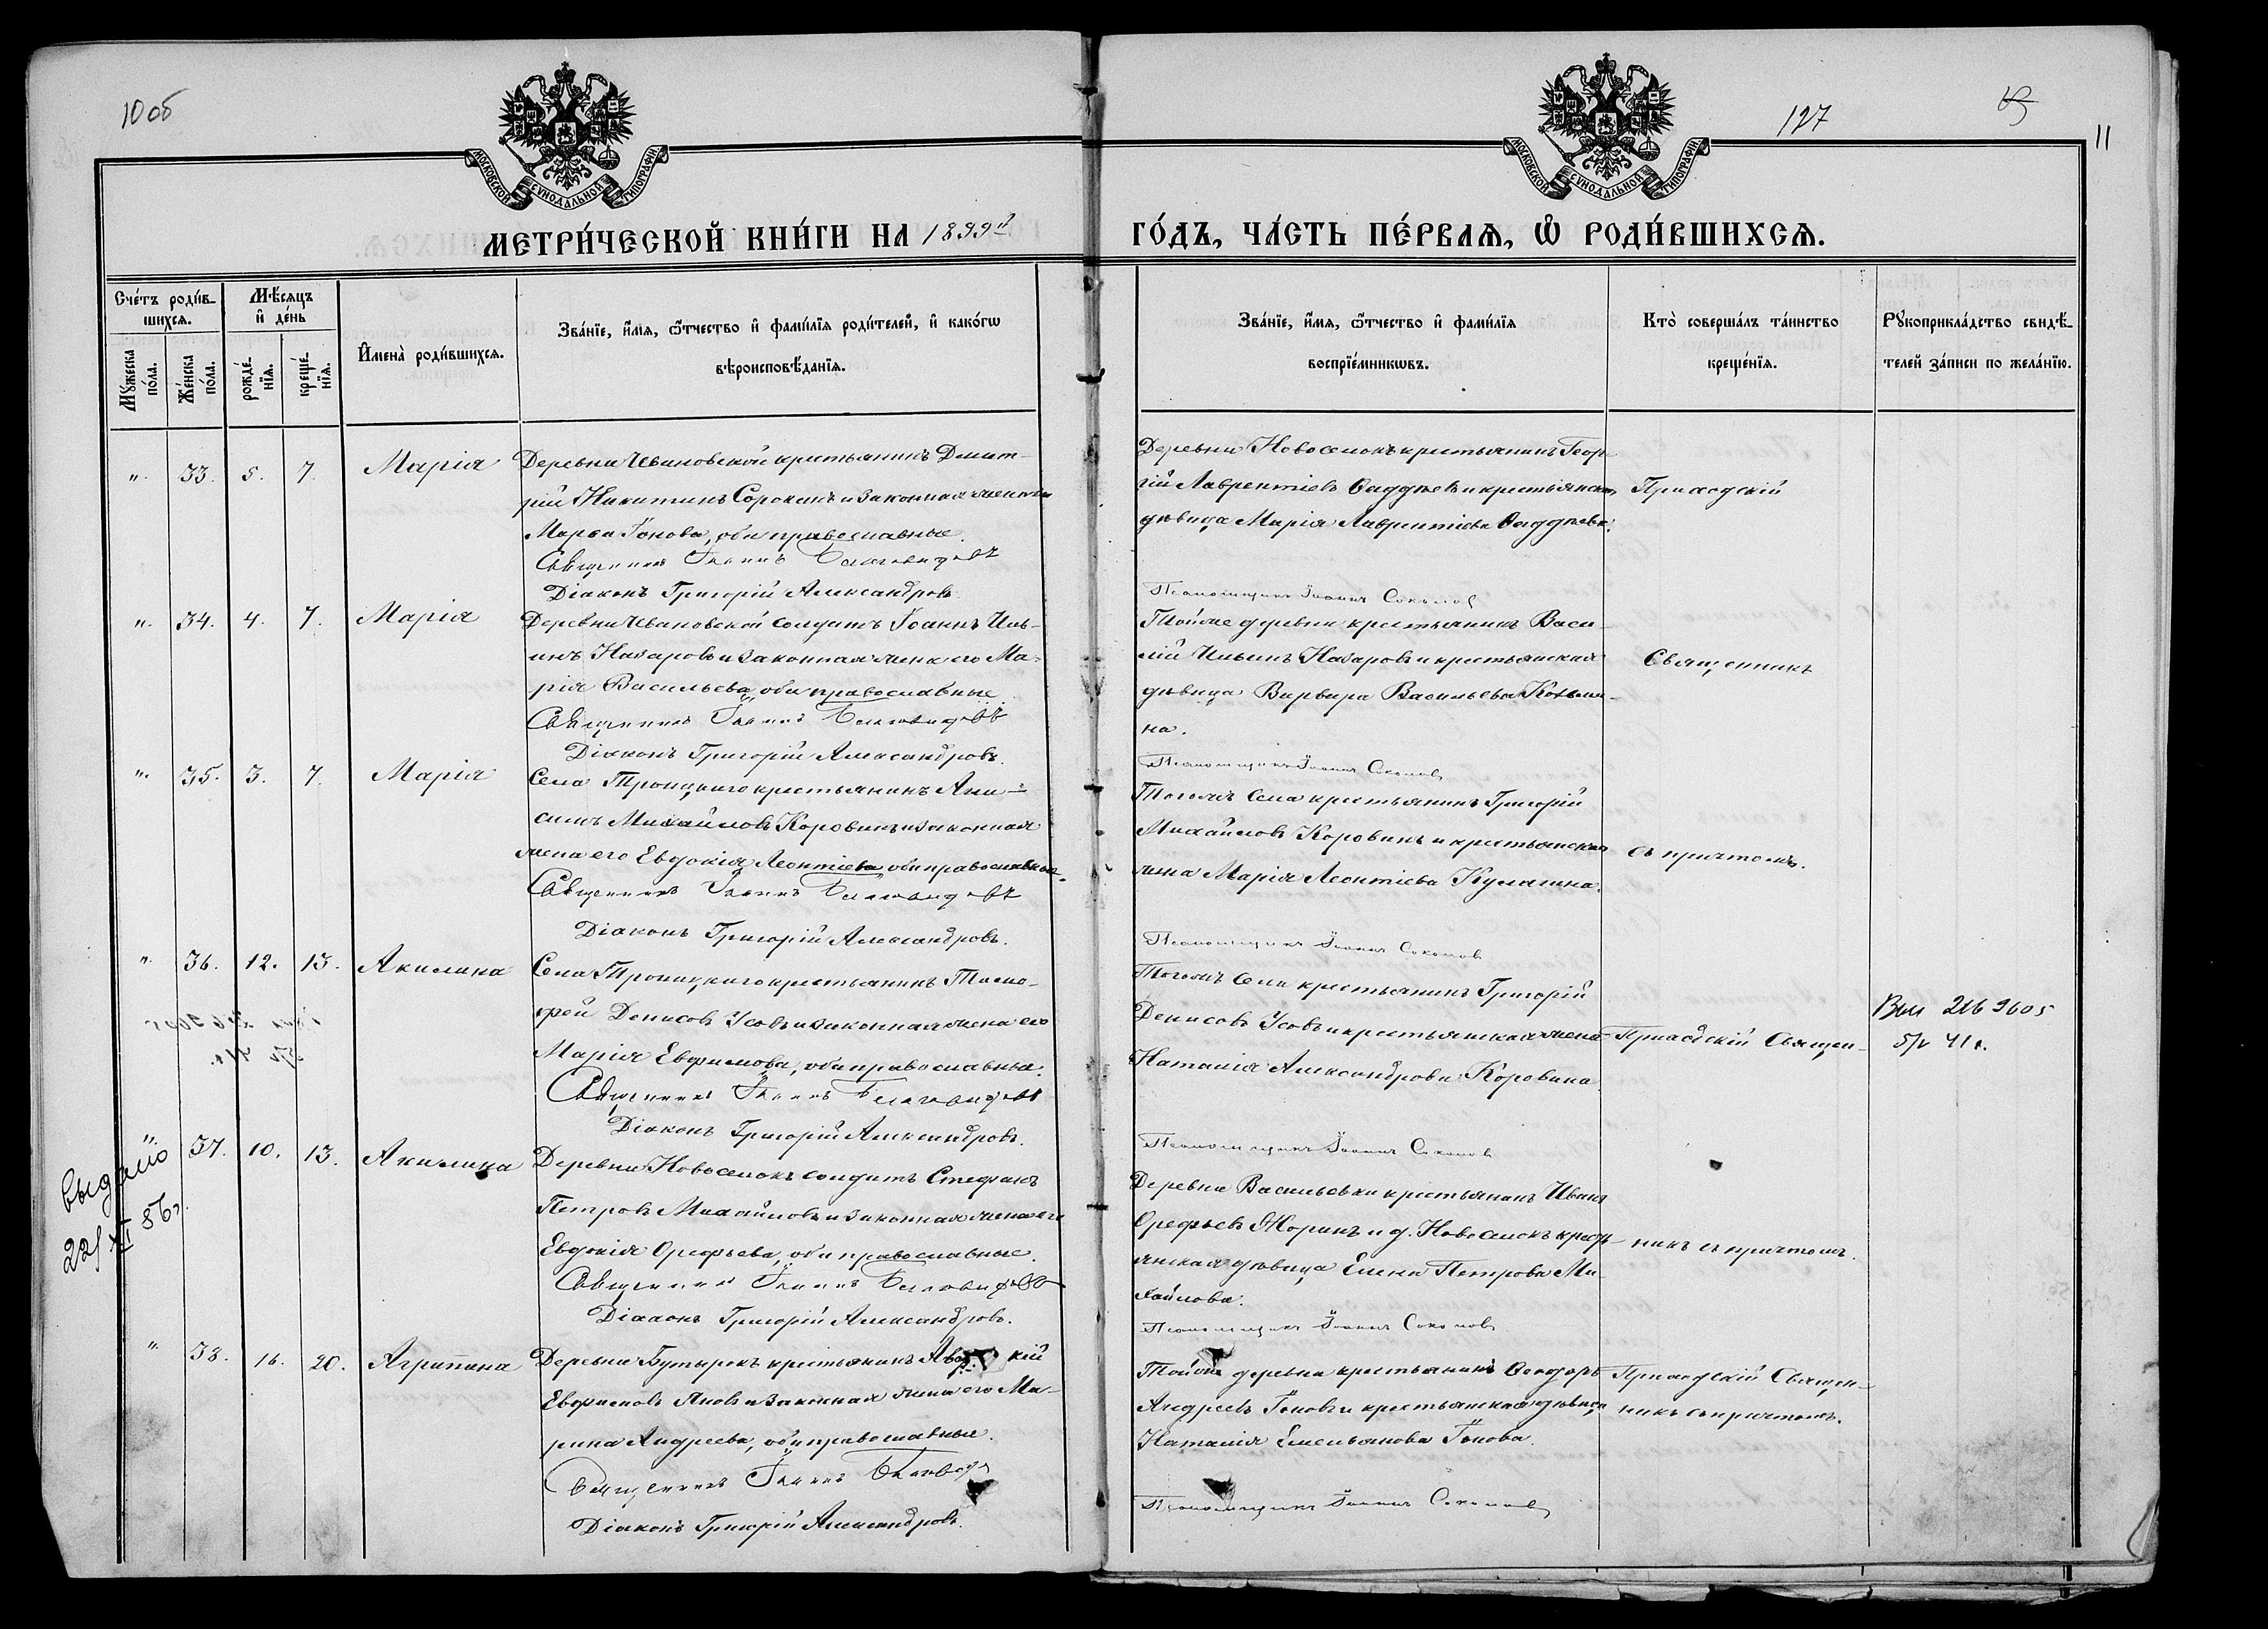 10 об
127
11
МОСКОВСКОЙ СѴНОДАЛЬНОЙ ТИПОГРАФІИ
МОСКОВСКОЙ СѴНОДАЛЬНОЙ ТИПОГРАФІИ
МЕТРИ́ЧЕСКОЙ КНИ́ГИ НА 1899й
ГО́ДЪ, ЧА́СТЬ ПЕ́РВАѦ, Ѡ҆ РОДИ́ВШИХСѦ.
Сче́тъ роди́в-
шихсѧ.
Мꙋ́жеска по́ла.
Же́нска по́ла.
Мѣ́сѧцъ
и҆ де́нь
рожде́-
нїѧ.
креще́-
нїѧ.
И҆мена̀ роди́вшихсѧ.
Зва́нїе, и҆́мѧ, ѻ҆́тчество и҆ фами́лїѧ роди́телей, и҆ како́гѡ
вѣроисповѣ́данїѧ.
Зва́нїе, и҆́мѧ, ѻ҆́тчество и҆ фами́лїѧ
воспрїе́мникѡвъ.
Кто̀ соверша́лъ та́инство
креще́нїѧ.
Рꙋкоприкла́дство свидѣ́-
телей за́писи по жела́нїю.
„ 33. 5. 7. Марія
Деревни Ивановской крестьянинъ Димит-
рій Никитинъ Сорокинъ и законная жена его
Марѳа Іонова, оба православные.
Священникъ Іоаннъ
Діаконъ Григорій Александровъ.
Деревни Новоселокъ крестьянинъ Геор-
гій Лаврентіевъ Ѳаддѣевъ и крестьянская
дѣвица Марія Лаврентіева Ѳаддѣева.
Псаломщикъ Іоаннъ Соколовъ
Приходскій
„ 34. 4. 7. Марія
Деревни Ивановской солдатъ Іоаннъ Иль-
инъ Назаровъ и законная жена его Ма-
рія Васильева, оба православные
Священникъ Іоаннъ
Діаконъ Григорій Александровъ.
Тойже деревни крестьянинъ Васи-
лій Ильинъ Назаровъ и крестьянская
дѣвица Варвара Васильева
на.
Псаломщикъ Іоаннъ Соколовъ
Священникъ
„ 35. 3. 7. Марія
Села Троицкаго крестьянинъ Ани-
симъ Михайловъ Коровинъ и законная
жена его Евдокія Леонтіева, оба православные.
Священникъ Іоаннъ
Діаконъ Григорій Александровъ.
Тогожъ села крестьянинъ Григорій
Михайловъ Коровинъ и крестьянская
жена Марія Леонтіева Кулагина.
Псаломщикъ Іоаннъ Соколовъ
съ причтомъ.
„ 36. 12. 13. Акилина
Села Троицкаго крестьянинъ Тимо-
фей Денисовъ Усовъ и законная жена его
Марія Евфимова, оба православные.
Священникъ Іоаннъ
Діаконъ Григорій Александровъ.
Тогожъ села крестьянинъ Григорій
Денисовъ Усовъ и крестьянская жена
Наталія Александрова Коровина.
Псаломщикъ Іоаннъ Соколовъ
Приходскій Священ-
216 9605
5/V 41 г.
„ 37. 10. 13. Акилина
выдано
22/XI 56 г.
Деревни Новоселокъ солдатъ Стефанъ
Петровъ Михайловъ и законная жена его
Евдокія Орефьева, оба православные.
Священникъ Іоаннъ
Діаконъ Григорій Александровъ.
Деревни Васильевки крестьянинъ Иванъ
Орефьевъ Жоринъ и д. Новоселокъ кресть-
янская дѣвица Елена Петрова Ми-
хайлова.
Псаломщикъ Іоаннъ Соколовъ
никъ съ причтомъ.
„ 38. 16. 20. Агрипина
Деревни Бутырокъ крестьянинъ
Евфимовъ Яковъ и законная жена его Ма-
рина Андреева, оба православные.
Священникъ Іоаннъ
Діаконъ Григорій Александровъ.
Тойже деревни крестьянинъ Ѳеодоръ
Андреевъ Іоновъ и крестьянская дѣвица
Наталія Емельянова Іонова.
Псаломщикъ Іоаннъ Соколовъ
Приходскій Священ-
никъ съ причтомъ.